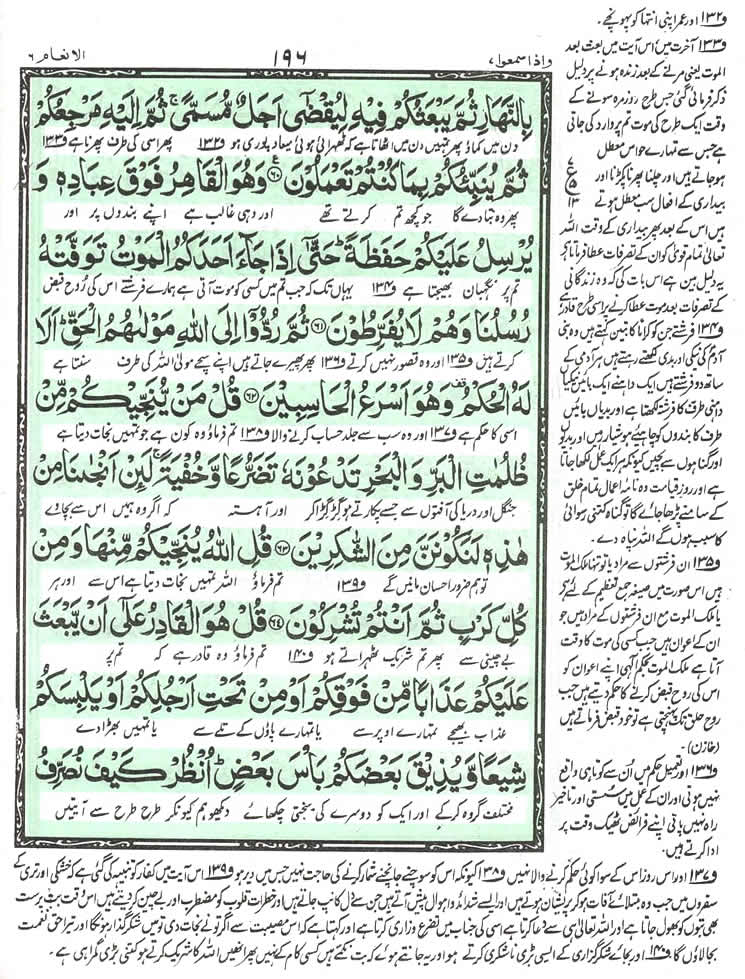 واذا سمعوا ۷
۱۹۶
الانعام ۶
بِالنَّهَارِ ثُمَّ يَبْعَثُكُمْ فِيْهِ لِيُقْضٰۤى اَجَلٌ مُّسَمًّىۚ ثُمَّ اِلَيْهِ مَرْجِعُكُمْ
دن میں کماؤ پھر تمہیں دن میں اٹھاتا ہے کہ ٹھہرائی ہوئی میعاد پوری ہو و۱۳۲ پھر اسی کی طرف پھرنا ہے و۱۳۳
ثُمَّ يُنَبِّئُكُمْ بِمَا كُنْتُمْ تَعْمَلُوْنَ ۶۰ وَهُوَ الْقَاهِرُ فَوْقَ عِبَادِهٖ وَ
پھر وہ بتا دے گا جو کچھ تم کرتے تھے اور وہی غالب ہے اپنے بندوں پر اور
يُرْسِلُ عَلَيْكُمْ حَفَظَةًؕ حَتّٰۤى اِذَا جَآءَ اَحَدَكُمُ الْمَوْتُ تَوَفَّتْهُ
تم پر نگہبان بھیجتا ہے و۱۳۴ یہاں تک کہ جب تم میں کسی کو موت آتی ہے ہمارے فرشتے اس کی روح قبض
رُسُلُنَا وَهُمْ لَا يُفَرِّطُوْنَ ۶۱ ثُمَّ رُدُّوْۤا اِلَى اللّٰهِ مَوْلٰىهُمُ الْحَقِّؕ اَلَا
کرتے ہیں و۱۳۵ اور وہ قصور نہیں کرتے و۱۳۶ پھر پھیرے جاتے ہیں اپنے سچے مولیٰ اللہ کی طرف سنتا ہے
لَهُ الْحُكْمُ وَهُوَ اَسْرَعُ الْحَاسِبِيْنَ ۶۲ قُلْ مَنْ يُّنَجِّيْكُمْ مِّنْ
اسی کا حکم ہے و۱۳۷ اور وہ سب سے جلد حساب کرنے والا و۱۳۸ تم فرماؤ وہ کون ہے جو تمہیں نجات دیتا ہے
ظُلُمٰتِ الْبَرِّ وَالْبَحْرِ تَدْعُوْنَهٗ تَضَرُّعًا وَّخُفْيَةًۚ لَىِٕنْ اَنْجٰىنَا مِنْ
جنگل اور دریا کی آفتوں سے جسے پکارتے ہو گڑگڑا کر اور آہستہ کہ اگر وہ ہمیں اس سے بچاوے
هٰذِهٖ لَنَكُوْنَنَّ مِنَ الشّٰكِرِيْنَ ۶۳ قُلِ اللّٰهُ يُنَجِّيْكُمْ مِّنْهَا وَمِنْ
تو ہم ضرور احسان مانیں گے و۱۳۹ تم فرماؤ اللہ تمہیں نجات دیتا ہے اس سے اور ہر
كُلِّ كَرْبٍ ثُمَّ اَنْتُمْ تُشْرِكُوْنَ ۶۴ قُلْ هُوَ الْقَادِرُ عَلٰۤى اَنْ يَّبْعَثَ
بے چینی سے پھر تم شریک ٹھہراتے ہو و۱۴۰ تم فرماؤ وہ قادر ہے کہ تم پر
عَلَيْكُمْ عَذَابًا مِّنْ فَوْقِكُمْ اَوْ مِنْ تَحْتِ اَرْجُلِكُمْ اَوْ يَلْبِسَكُمْ
عذاب بھیجے تمہارے اوپر سے یا تمہارے پاؤں کے تلے سے یا تمہیں بھڑا دے
شِيَعًا وَّيُذِيْقَ بَعْضَكُمْ بَاْسَ بَعْضٍؕ اُنْظُرْ كَيْفَ نُصَرِّفُ
مختلف گروہ کر کے اور ایک کو دوسرے کی سختی چکھائے دیکھو ہم کیونکر طرح طرح سے آیتیں
و۱۳۲ اور عمر اپنی انتہا کو پہونچے۔
و۱۳۳ آخرت میں اس آیت میں بعث بعد
الموت یعنی مرنے کے بعد زندہ ہونے پر دلیل
ذکر فرمائی گئی جس طرح روزمرہ سونے کے
وقت ایک طرح کی موت تم پر وارد کی جاتی
ہے جس سے تمہارے حواس معطل
ہو جاتے ہیں اور چلنا پھرنا پکڑنا اور
بیداری کے افعال سب معطل ہوتے
ہیں اس کے بعد پھر بیداری کے وقت اللہ
تعالیٰ تمام قویٰ کو ان کے تصرفات عطا فرماتا ہے
یہ دلیل بین ہے اس بات کی کہ وہ زندگانی
کے تصرفات بعد موت عطا کرنے پر اسی طرح قادر ہے
و۱۳۴ فرشتے جن کو کراماً کاتبین کہتے ہیں وہ بنی
آدم کی نیکی اور بدی لکھتے رہتے ہیں ہر آدمی کے
ساتھ دو فرشتے ہیں ایک داہنے ایک بائیں نیکیاں
داہنی طرف کا فرشتہ لکھتا ہے اور بدیاں بائیں
طرف کا بندوں کو چاہئے ہوشیار رہیں اور بدیوں
اور گناہوں سے بچیں کیونکہ ہر ایک عمل لکھا جاتا
ہے اور روز قیامت وہ نامۂ اعمال تمام خلق
کے سامنے پڑھا جائے گا تو گناہ کتنی رسوائی
کا سبب ہوں گے اللہ پناہ دے۔
و۱۳۵ ان فرشتوں سے مراد یا تو تنہا ملک الموت
ہیں اس صورت میں صیغہ جمع تعظیم کے لئے ہے
یا ملک الموت مع ان فرشتوں کے مراد ہیں جو
ان کے اعوان ہیں جب کسی کی موت کا وقت
آتا ہے ملک الموت بحکم الٰہی اپنے اعوان کو
اس کی روح قبض کرنے کا حکم دیتے ہیں جب
روح حلق تک پہنچتی ہے تو خود قبض فرماتے ہیں
(خازن)۔
و۱۳۶ اور تعمیل حکم میں اُن سے کوتاہی واقع
نہیں ہوتی اور ان کے عمل میں سستی اور تاخیر
راہ نہیں پاتی اپنے فرائض ٹھیک وقت پر
ادا کرتے ہیں۔
و۱۳۷ اور اس روز اس کے سوا کوئی حکم کرنے والا نہیں و۱۳۸ کیونکہ اس کو سوچنے جانچنے شمار کرنے کی حاجت نہیں جس میں دیر ہو و۱۳۹ اس آیت میں کفار کو تنبیہ کی گئی ہے کہ خشکی اور تری کے
سفروں میں جب وہ مبتلائے آفات ہو کر پریشان ہوتے ہیں اور ایسے شدائد و اہوال پیش آتے ہیں جن سے دل کانپ جاتے ہیں اور خطرات قلوب کو مضطرب اور بے چین کر دیتے ہیں اس وقت بت پرست
بھی بتوں کو بھول جاتا ہے اور اللہ تعالیٰ ہی سے دعا کرتا ہے اسی کی جناب میں تضرع و زاری کرتا ہے اور کہتا ہے کہ اس مصیبت سے اگر تو نے نجات دی تو میں شکر گذار ہوں گا اور تیرا حق نعمت
بجا لاؤں گا و۱۴۰ اور بجائے شکر گزاری کے ایسی بڑی ناشکری کرتے ہو اور یہ جانتے ہوئے کہ بت نکمے ہیں کسی کام کے نہیں پھر انھیں اللہ کا شریک کرتے ہو کتنی بڑی گمراہی ہے۔